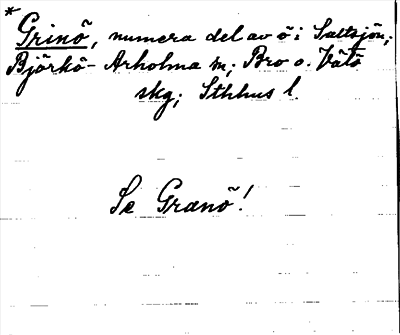 *
Grinö, numera del av ö i Saltsjön;
Björkö-Arholma sn; Bro o. Vätö
skg; Sthlms l.
Se Granö!